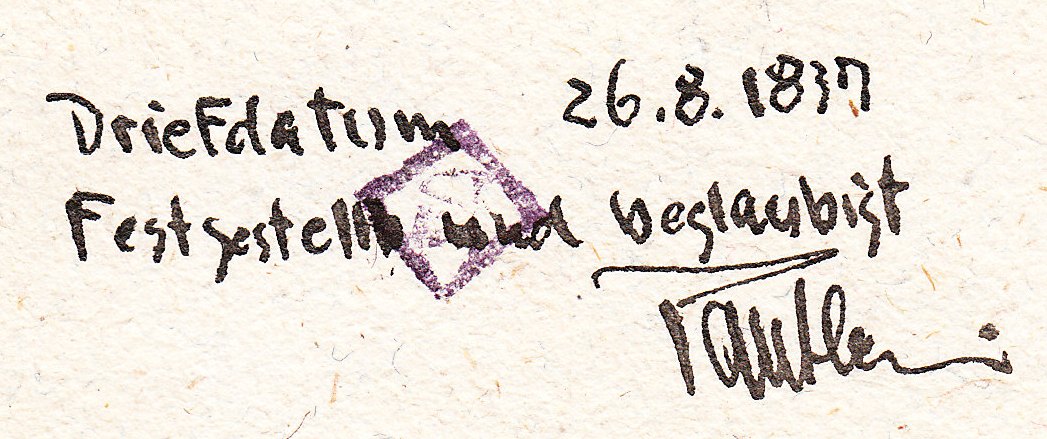 Briefdatum 26.8.1837
Festgestellt und beglaubigt